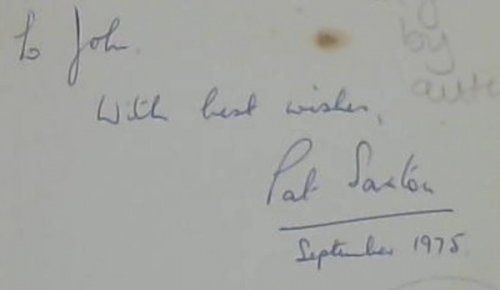 To John.
With best wishes,
Pat Saxton
September 1975
by